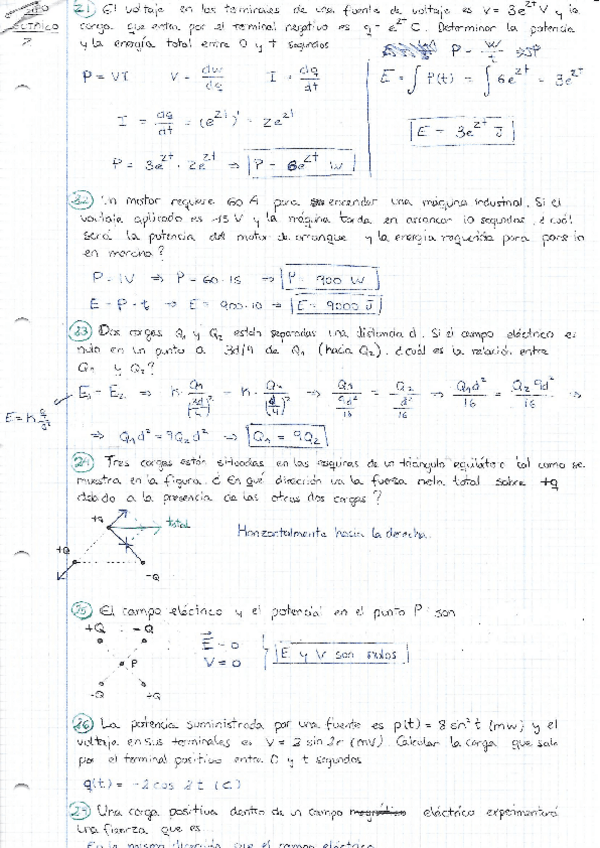 21 El voltaje en los terminales de una fuente de voltaje es v = 3e^2t V y la
carga que entra por el terminal negativo es q = e^2t C. Determinar la potencia
y la energía total entre 0 y t segundos
P = VI V = dw/dq I = dq/dt
I = dq/dt = (e^2t)' = 2e^2t
P = 3e^2t · 2e^2t ⇒ P = 6e^2t W
P = W/t
E = ∫ P(t) = ∫ 6e^2t = 3e^2t
E = 3e^2t J
22 Un motor requiere 60 A para encender una máquina industrial. Si el
voltaje aplicado es 15 V y la máquina tarda en arrancar 10 segundos, ¿cuál
será la potencia del motor de arranque y la energía requerida para ponerlo
en marcha?
P = IV ⇒ P = 60·15 ⇒ P = 900 W
E = P·t ⇒ E = 900·10 ⇒ E = 9000 J
23 Dos cargas Q1 y Q2 están separadas una distancia d. Si el campo eléctrico es
nulo en un punto a 3d/4 de Q1 (hacia Q2). ¿cuál es la relación entre
Q1 y Q2?
E1 = E2 ⇒ K · Q1/(3d/4)² = K · Q2/(d/4)² ⇒ Q1/(9d²/16) = Q2/(d²/16) ⇒ Q1d²/16 = Q2 9d²/16 ⇒
E = K q/d²
⇒ Q1d² = 9Q2d² ⇒ Q1 = 9Q2
24 Tres cargas están situadas en las esquinas de un triángulo equilátero tal como se
muestra en la figura. ¿En qué dirección va la fuerza neta total sobre +Q
debido a la presencia de las otras dos cargas?
+Q
total
Horizontalmente hacia la derecha.
+Q
-Q
25 El campo eléctrico y el potencial en el punto P son
+Q -Q
E = 0
V = 0
E y V son nulos
P
-Q +Q
26 La potencia suministrada por una fuente es p(t) = 8 sin² t (mW) y el
voltaje en sus terminales es V = 2 sin 2t (mV). Calcular la carga que sale
por el terminal positivo entre 0 y t segundos
q(t) = -2 cos 2t (C)
27 Una carga positiva dentro de un campo eléctrico experimentará
una fuerza que es
En la misma dirección que el campo eléctrico